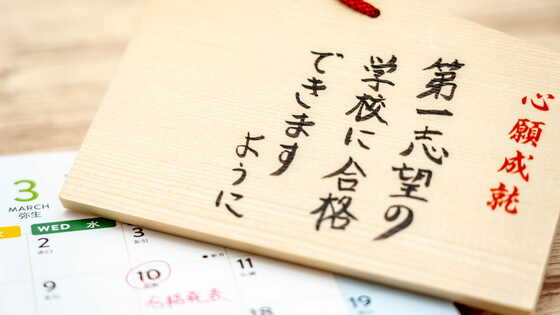 心願成就
第一志望の
学校に合格
できます
ように
3
MARCH
弥生
WED 水
2
3
10
11
9
合格発表
18
19